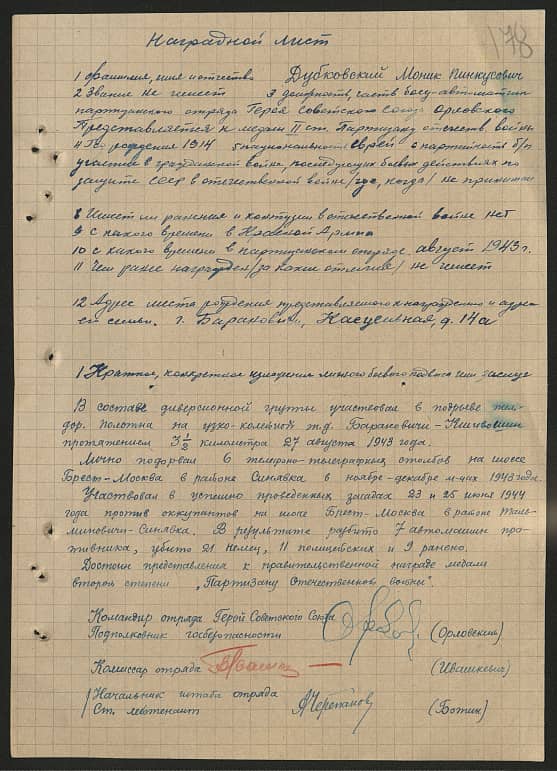 178
Наградной лист
1 Фамилия, имя и отчество Дубковский Моник Пинкусович
2 Звание не имеет 3 должность, часть боец-автоматчик
партизанского отряда Героя Советского Союза Орловского
Представляется к медали II ст. Партизану отечеств. войны
4 Год рождения 1914 5 национальность еврей 6 партийность б/п
участие в гражданской войне, последующих боевых действиях по
защите СССР в отечественной войне/где, когда/ не принимал
8 Имеет ли ранения и контузии в отечественной войне нет
9 с какого времени в Красной Армии
10 с какого времени в партизанском отряде август 1943 г.
11 Чем ранее награжден/за какие отличия/ не имеет
12 Адрес места рождения представляемого к награждению и адрес
его семьи. г. Барановичи, д. 14а
1 Краткое, конкретное изложение личного боевого подвига или заслуг
В составе диверсионной группы участвовал в подрыве жел-
дор. полотна на узко-колейной ж.д. Барановичи-
протяжением 3 1/2 километра 27 августа 1943 года.
Лично подорвал 6 телефоно-телеграфных столбов на шоссе
Брест-Москва в районе Синявка в ноябре-декабре м-цах 1943 года.
Участвовал в успешно проведенных засадах 23 и 25 июня 1944
года против оккупантов на шоссе Брест-Москва в районе Таль-
миновичи-Синявка. В результате разбито 7 автомашин про-
тивника, убито 21 немец, 11 полицейских и 9 ранено.
Достоин представления к правительственной награде медали
второй степени „Партизану Отечественной войны".
Командир отряда Герой Советского Союза
Подполковник госбезопасности (Орловский)
Комиссар отряда (Ивашкевич)
/Начальник штаба отряда
Ст. лейтенант АЧерепанов (Божин)